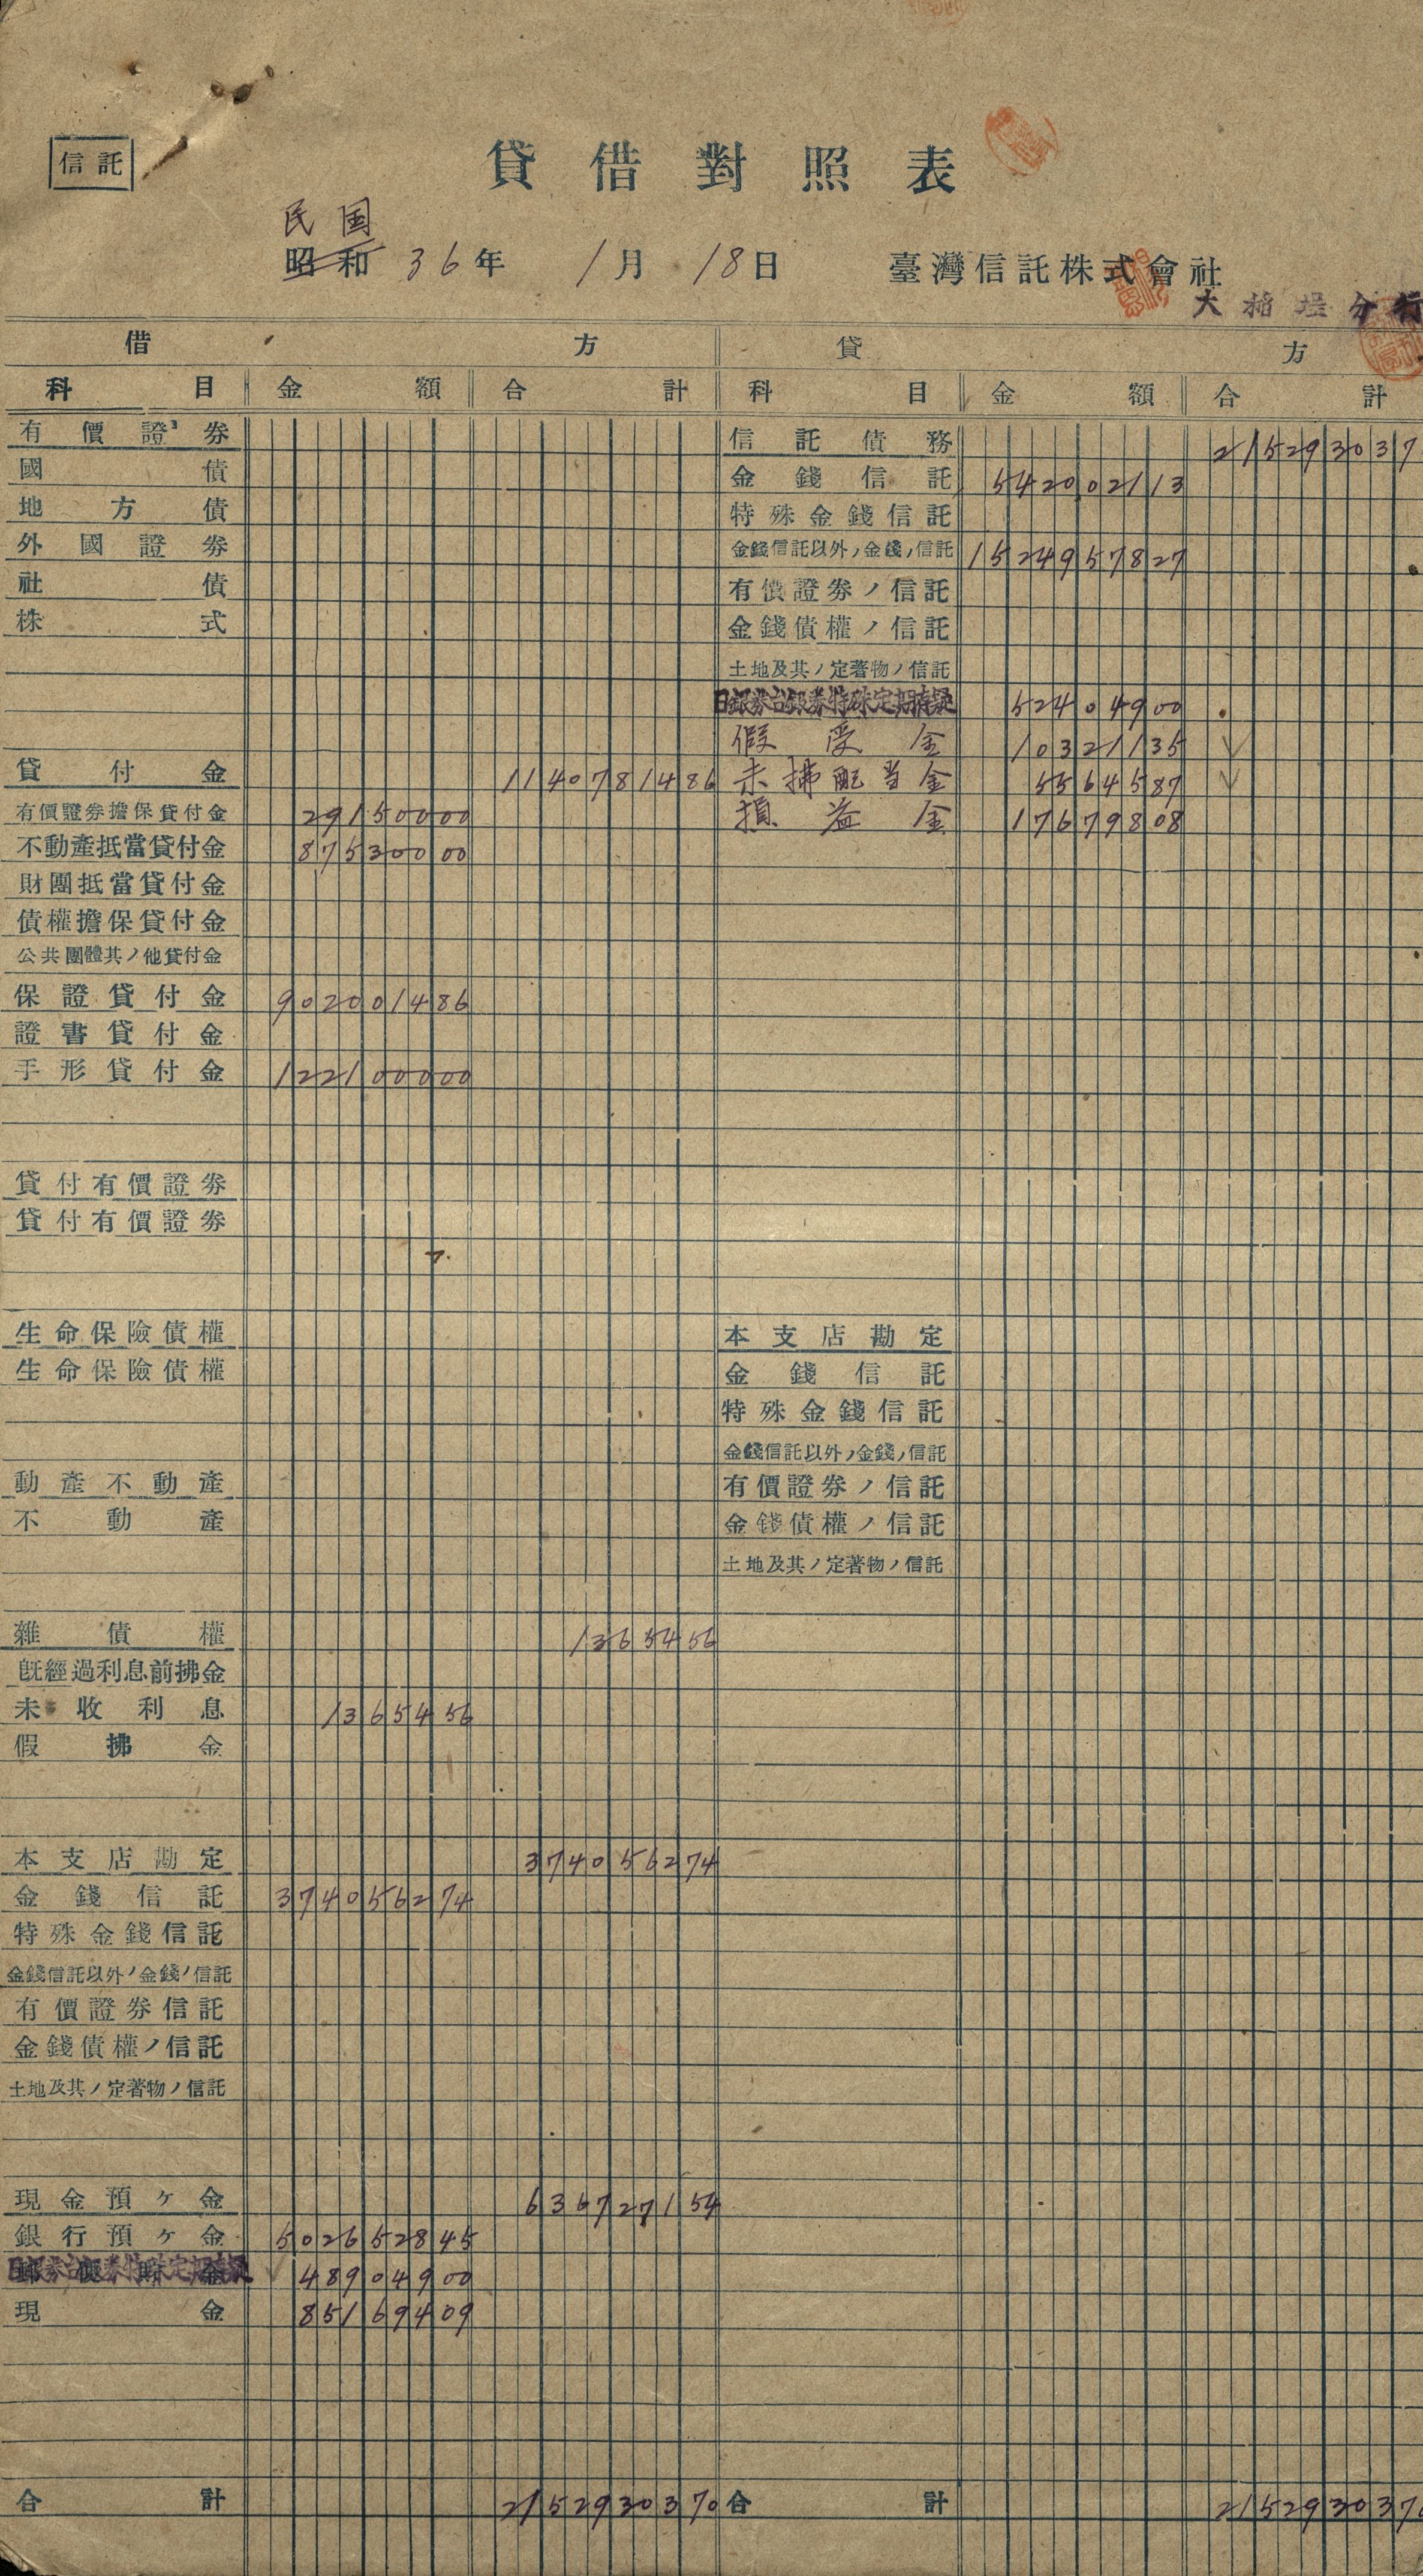 信託
貸借對照表
民国
昭和 36年 1月 18日 臺灣信託株式會社
大稻埕分行
借 方
科目 金額 合計
有價證券
國債
地方債
外國證券
社債
株式
貸付金 1140781486
有價證券擔保貸付金 29150000
不動產抵當貸付金 87530000
財團抵當貸付金
債權擔保貸付金
公共團體其ノ他貸付金
保證貸付金 902001486
證書貸付金
手形貸付金 122100000
貸付有價證券
貸付有價證券
生命保險債權
生命保險債權
動產不動產
不動產
雜債權 1365456
旣經過利息前拂金
未收利息 1365456
假拂金
本支店勘定 374056274
金錢信託 374056274
特殊金錢信託
金錢信託以外ノ金錢ノ信託
有價證券信託
金錢債權ノ信託
土地及其ノ定著物ノ信託
現金預ヶ金 636727154
銀行預ヶ金 502652845
日銀券台銀券特殊定期 48904900
現金 85169409
合計 2152930370
貸 方
科目 金額 合計
信託債務 215293037
金錢信託 542002113
特殊金錢信託
金錢信託以外ノ金錢ノ信託 1524957827
有價證券ノ信託
金錢債權ノ信託
土地及其ノ定著物ノ信託
日銀券台銀券特殊定期 52404900
假受金 10321135
未拂配当金 5564587
損益金 17679808
本支店勘定
金錢信託
特殊金錢信託
金錢信託以外ノ金錢ノ信託
有價證券ノ信託
金錢債權ノ信託
土地及其ノ定著物ノ信託
合計 2152930370